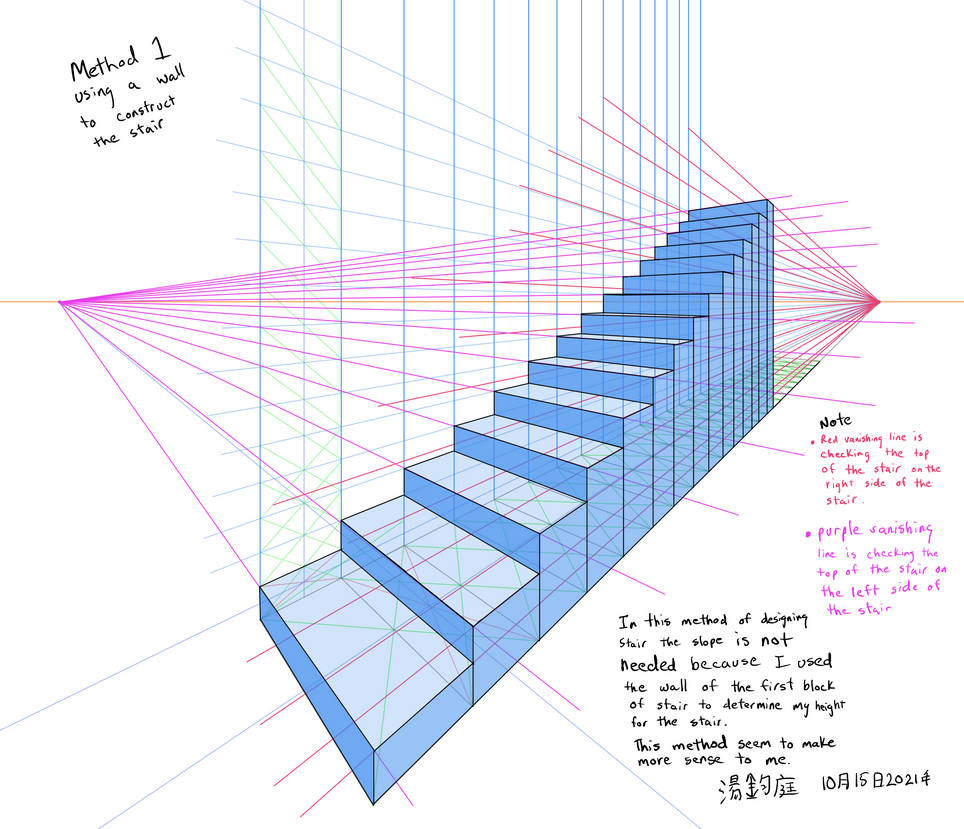 Method 1
using a wall
to construct
the stair
Note
• Red vanishing line is
checking the top
of the stair on the
right side of the
stair.
• purple vanishing
line is checking the
top of the stair on
the left side of
the stair
In this method of designing
stair the slope is not
needed because I used
the wall of the first block
of stair to determine my height
for the stair.
This method seem to make
more sense to me.
湯鈞庭 10月15日2021年